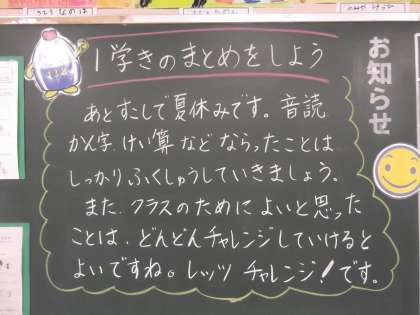 1学きのまとめをしよう
お知らせ
あとすこしで夏休みです。音読
かん字、けい算などならったことは
しっかりふくしゅうしていきましょう。
また、クラスのためによいと思った
ことは、どんどんチャレンジしていけると
よいですね。レッツ チャレンジ!です。